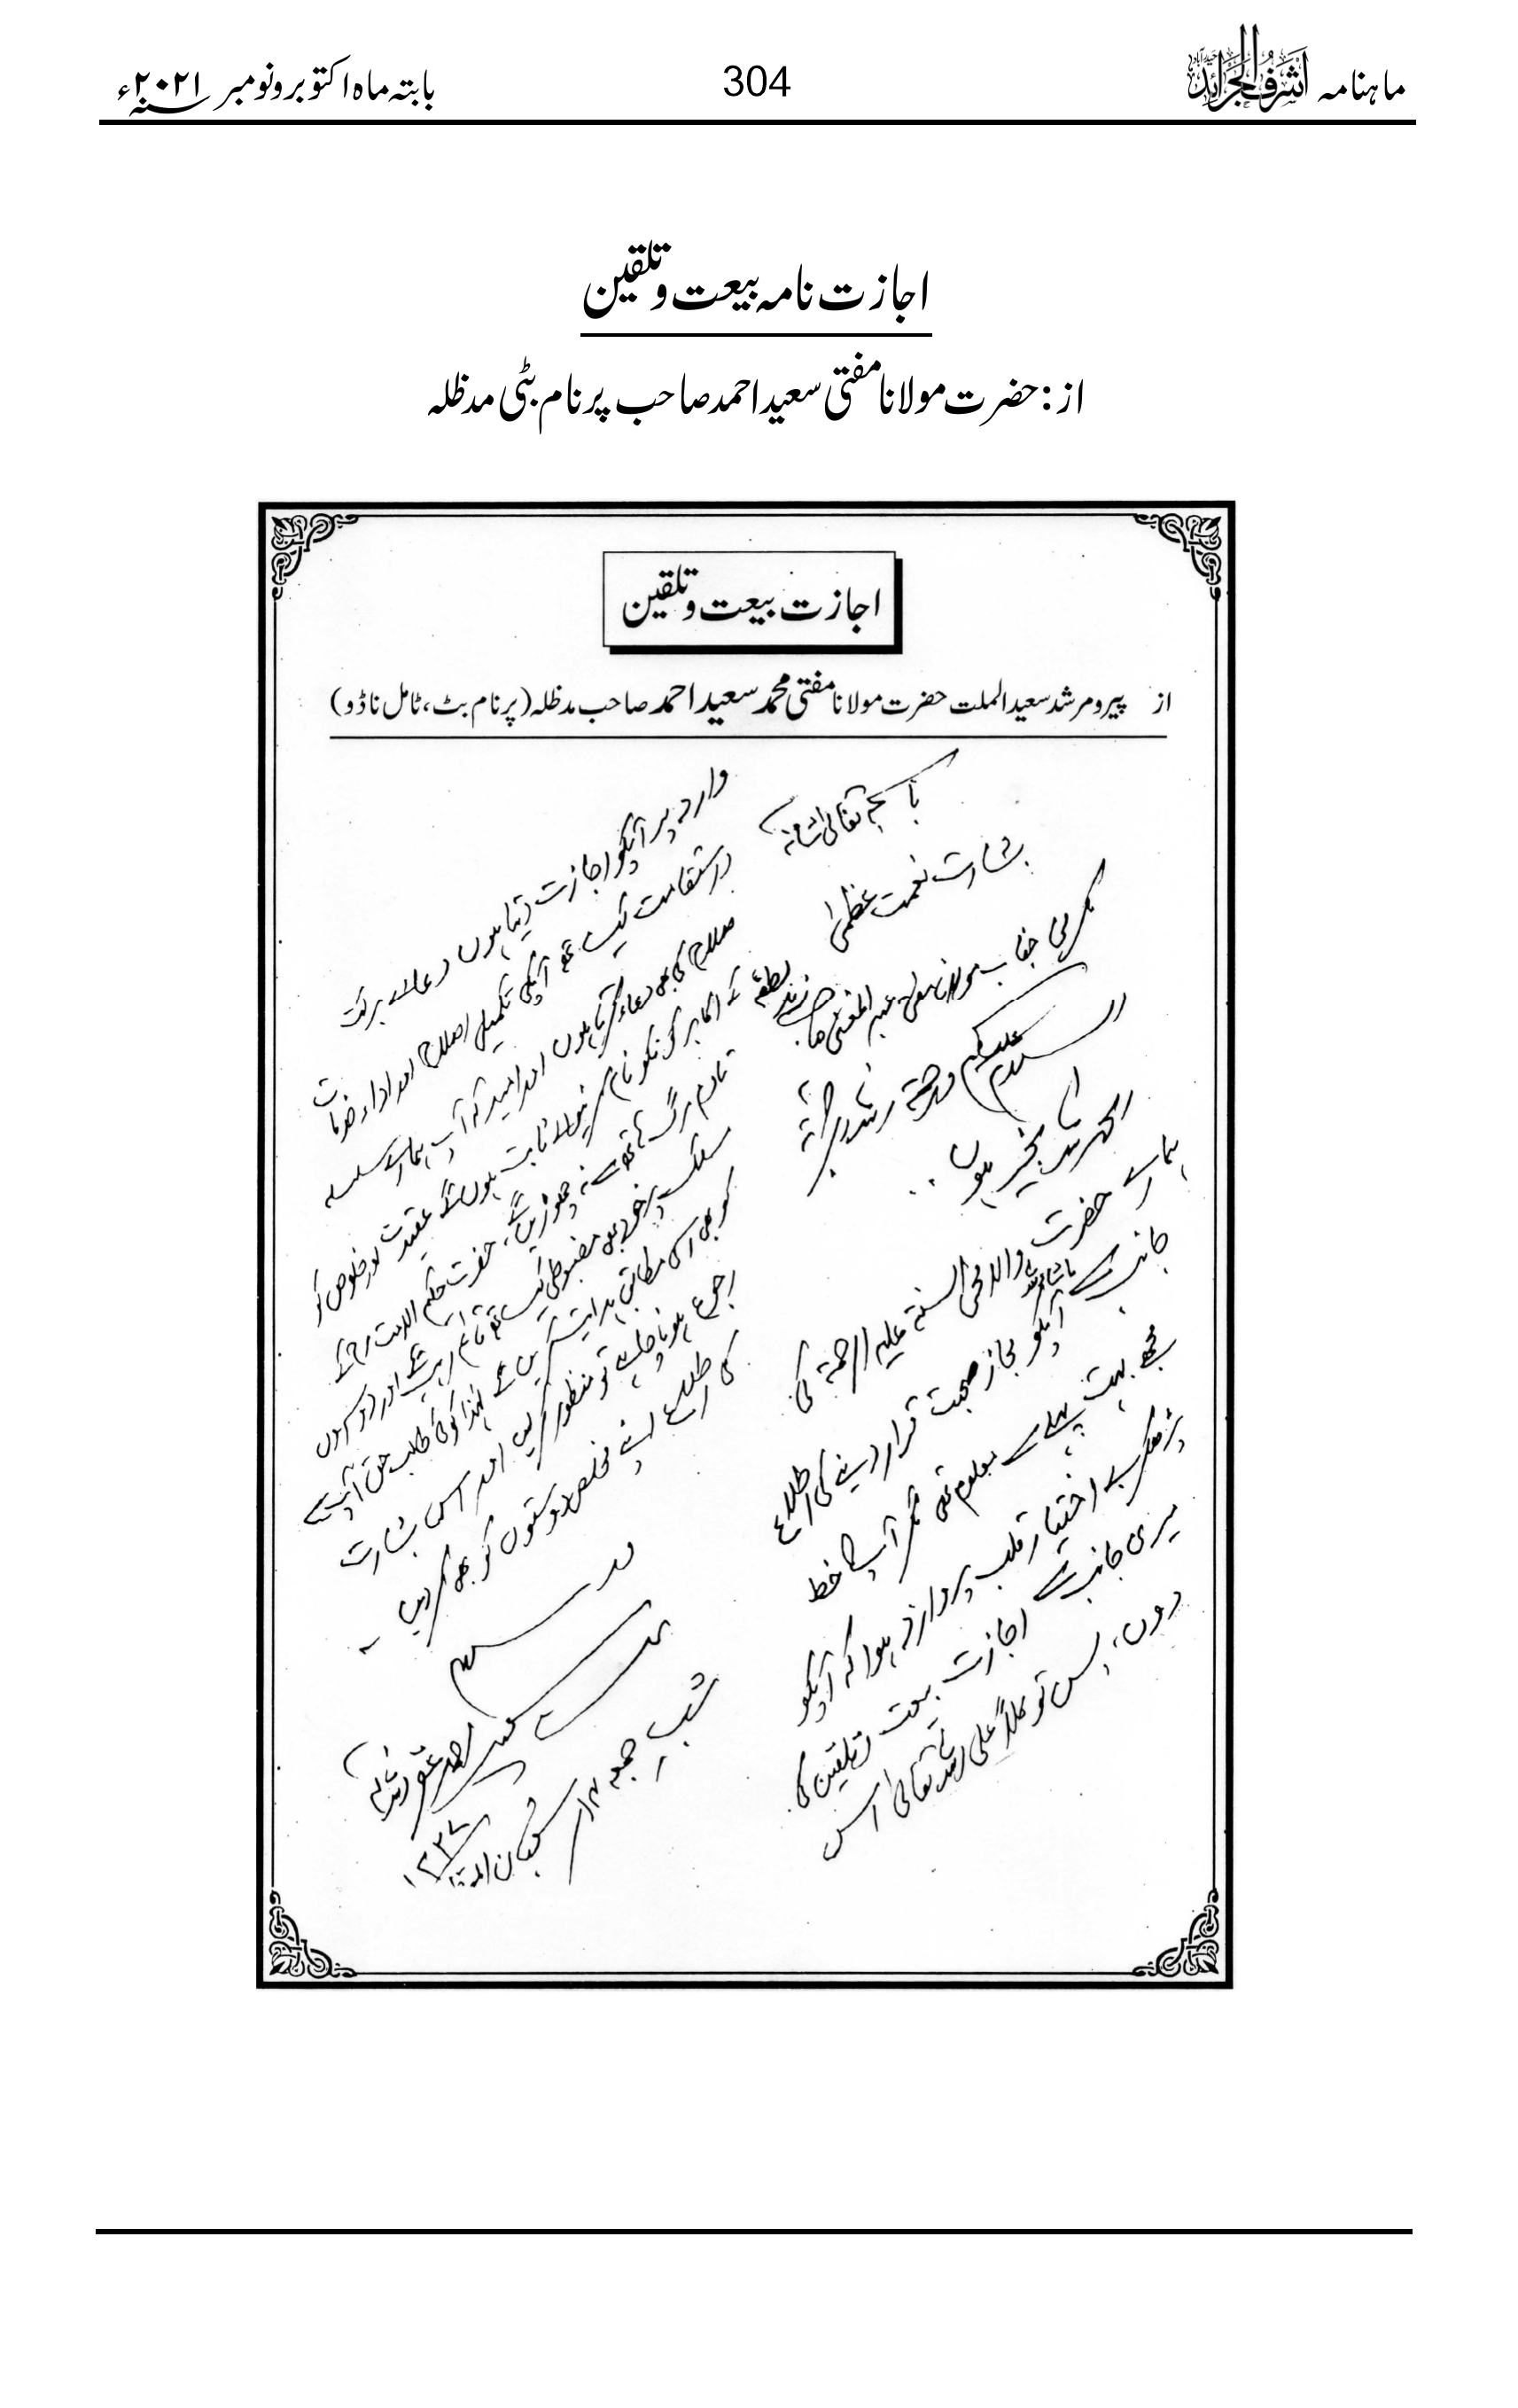 ماہنامہ اشرف الجرائد حیدرآباد
304
بابتہ ماہ اکتوبر و نومبر ۲۰۲۱ء
اجازت نامہ بیعت و تلقین
از: حضرت مولانا مفتی سعید احمد صاحب پرنام بٹی مدظلہ
اجازت بیعت و تلقین
از پیر و مرشد سعید الملت حضرت مولانا مفتی محمد سعید احمد صاحب مدظلہ (پرنام بٹ، ٹامل ناڈو)
باسمہ تعالیٰ شانہ
بشارت نعمت عظمیٰ
مکرمی جناب مولانا عبد المغنی صاحب زید لطفہ
السلام علیکم ورحمۃ اللہ وبرکاتہ
الحمد للہ بخیر ہوں
ہمارے حضرت والا محی السنۃ علیہ الرحمۃ کی
جانب سے ماشاء اللہ آپکو مجاز صحبت قرار دینے کی اطلاع
مجھے بہت پہلے سے معلوم تھی مگر آپ کا خط
پڑھکر بے اختیار قلب پر وارد ہوا کہ آپکو
میری جانب سے اجازت بیعت و تلقین کی
دوں، بس توکلاً علی اللہ تعالیٰ اس
وارد پر آپکو اجازت دیتا ہوں دعائے برکت
و استقامت کیساتھ آپکی تکمیل اصلاح اور اداء خدمات
اصلاح کی بھی دعاء کرتا ہوں اور امید کہ آپ ہمارے سلسلہ
کے اکابر کو نکو نام کرنیوالے ثابت ہوں گے عقیدت اور خلوص کو
تادم مرگ ہاتھ سے نہ چھوڑیں گے، حضرت حکیم الامت رح کے
مسلک پر خود بھی مضبوطی کیساتھ قائم رہیں گے اور دوسروں
کو بھی اسی مطابق ہدایت کریں گے لہذا کوئی طالب حق آپ سے
رجوع ہونا چاہے تو منظور کریں اور اس بشارت
کی اطلاع اپنے مخلص دوستوں کو بھی کردیں۔
والسلام
سعید احمد عفی اللہ عنہ
شب جمعہ
شعبان المعظم